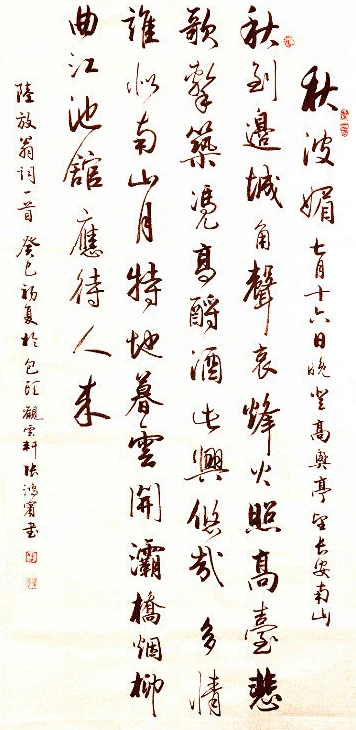 秋波媚 七月十六日晚登高興亭望長安南山
秋到邊城角聲哀烽火照高臺悲
歌擊築憑高酹酒此興悠哉多情
誰似南山月特地暮雲開灞橋烟柳
曲江池館應待人來
陸放翁詞一首 癸巳初夏於包頭觀雲軒張鴻賓書